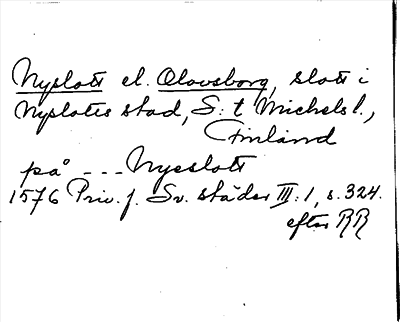 Nyslott el. Olovsborg, slott i
Nyslotts stad, S:t Michels l.,
Finland
på --- Nyeslott
1576 Priv. f. Sv. städer III:1, s. 324.
efter RR